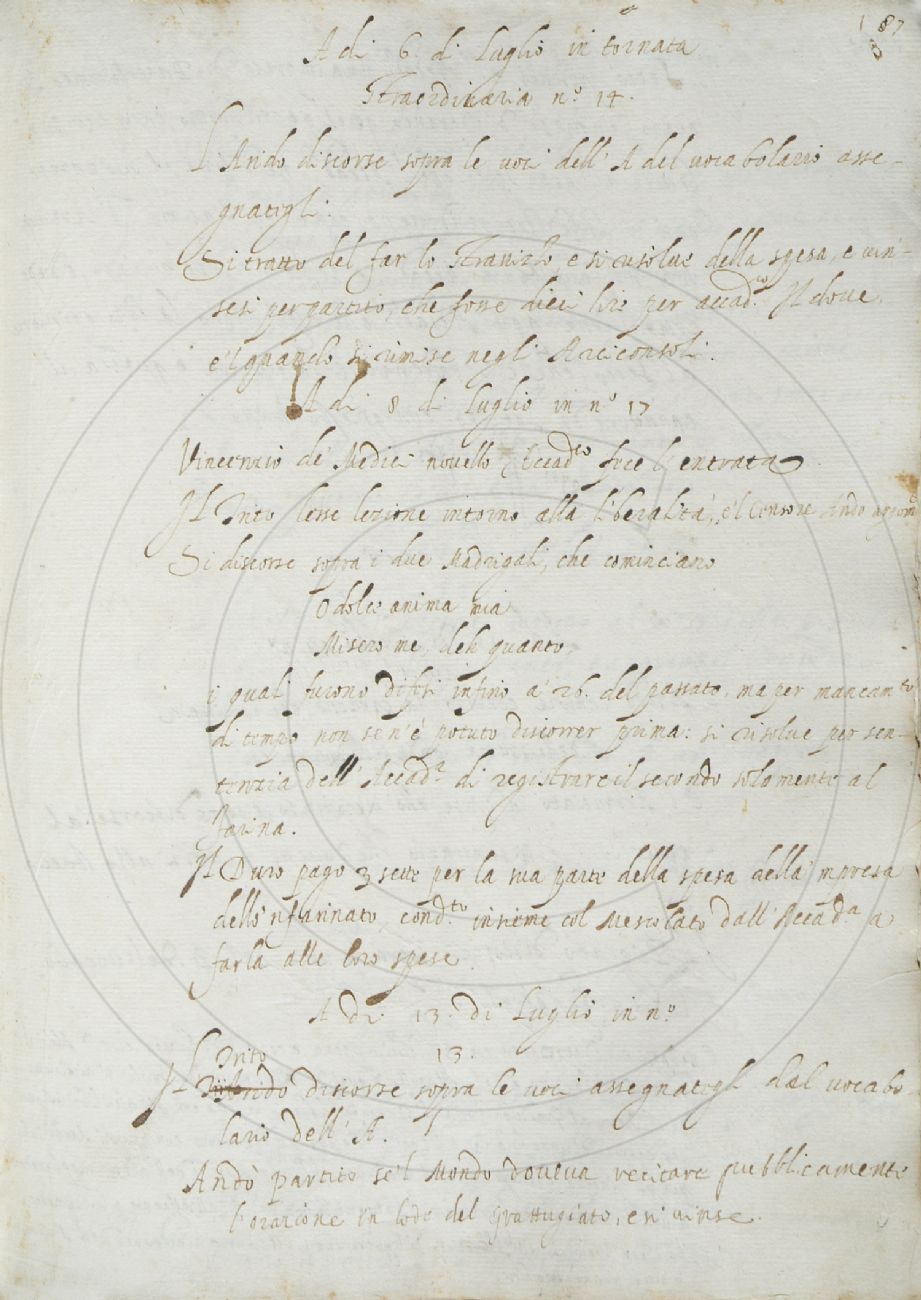 187
A di 6. di Luglio in tornata
straordinaria n.º 14.
L'Arido discorse sopra le voci dell'A del vocabolario asse-
gnatigli.
Si trattò del far lo stravizzo, e si risolve della spesa, e vin-
sesi per partito, che fosse dieci lire per accad.co Il dove,
e'l quando si rimise negli Arciconsoli.
A di 8 di Luglio in n.º 17
Vincenzio de' Medici novello Accad.co fece l'entrata
Il Trito lesse lezione intorno alla liberalità, e'l Censore andò
Si discorse sopra i due Madrigali, che cominciano
O dolce anima mia
Misero me, deh quanto,
i quali furono difesi infino a' 26. del passato, ma per mancam.to
di tempo non se n'è potuto discorrer prima: si risolve per sen-
tenzia dell'Accad.a di registrare il secondo solamente al
farina.
Il Duro pagò 3 sette per la sua parte della spesa della 'mpresa
dello 'nfarinato, cond.to insieme col Mescolato dall'Accad.a a
farla alle loro spese.
A di 13. di Luglio in n.º
13.
Trito
Il discorse sopra le voci assegnategli dal vocabo-
lario dell'A.
Andò partito se'l Mondo doveva recitare pubblicamente
l'orazione in lode del Grattugiato, e si vinse.